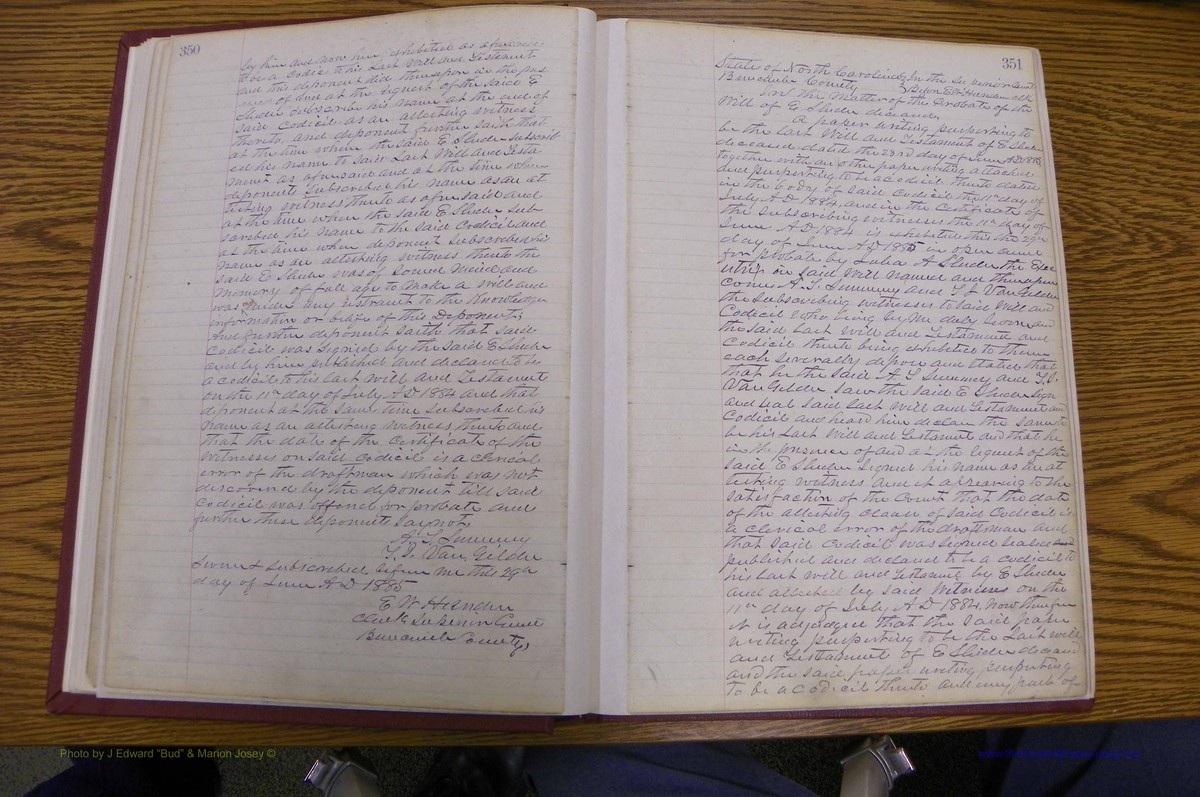 350
by him and now here exhibited as aforesaid
for a codicil to his Last Will and Testament
and this deponent did thereupon in the pres
ence of and at the request of the said E
Sluder subscribe his name at the end of
said Codicil as an attesting witness
thereto, and deponent further saith that
at the time when the said E Sluder subscrib
ed his name to said Last Will and Testa
ment as aforesaid and at the time when
deponent subscribed his name as an at
testing witness thereto as aforesaid and
at the time when the said E Sluder sub
scribed his name to the said Codicil and
at the time when deponent subscribed his
name as an attesting witness thereto the
said E Sluder was of sound mind and
memory of full age to make a will and
was under any restraint to the knowledge
information or belief of this Deponent;
and further deponent saith that said
codicil was signed by the said E Sluder
and by him published and declared to be
a codicil to his Last Will and Testament
on the 11th day of July A D 1884 and that
deponent at the same time subscribed his
name as an attesting witness thereto and
that the date of the certificate of the
witnesses on said codicil is a clerical
error of the draftman which was not
discovered by the deponent till said
Codicil was offered for probate and
further these deponents say not,
A. T. Summey
T. J. Van Gilder
Sworn & subscribed before me this 29th
day of June A D 1885
E W Herndon
Clerk Superior Court
Buncombe County,
351
State of North Carolina In the Superior Court
Buncombe County Before E W Herndon clk
In the matter of the Probate of the
Will of E Sluder deceased,
A paper writing purporting to
be the last Will and Testament of E Sluder
deceased dated the 23rd day of June A D 188
together with another paper writing attached
and purporting to be a codicil thereto dated
in the body of said codicil the 11th day of
July A D 1884, and in the certificate of
the subscribing witnesses the 11th day of
June A D 1884 is exhibited this the 29th
day of June A D 1885 in open court
for probate by Julia A Sluder the Exec
utrix in said Will named and thereupon
comes A. T. Summey and T J Van Gilder
the subscribing witnesses to said Will and
Codicil who being by me duly sworn and
the said Last Will and Testament and
Codicil thereto being exhibited to them
each severally depose and state that
that he the said A T Summey and T. J.
Van Gilder saw the said E Sluder sign
and seal said Last Will and Testament and
Codicil and heard him declare the same to
be his Last Will and Testament and that he
in the presence of and at the request of the
said E Sluder signed his name as an at
testing witness and it appearing to the
satisfaction of the Court that the date
of the attesting clause of said Codicil is
a clerical error of the draftman and
that said Codicil was signed sealed and
published and declared to be a codicil to
his Last Will and Testament by E Sluder
and attested by said Witnesses on the
11th day of July A D 1884, Now therefore
it is adjudged that the said paper
writing purporting to be the Last will
and Testament of E Sluder deceased
and the said paper writing purporting
to be a codicil thereto and every part of
Photo by J Edward "Bud" & Marion Josey ©